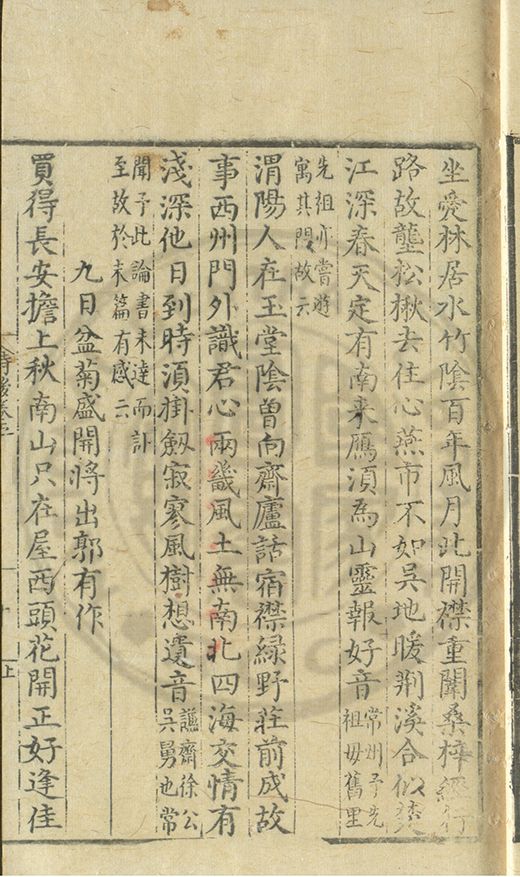 坐愛林居水竹陰百年風月此開襟重闈桑梓經行
路故壟松楸去住心燕市不如吳地暖荆溪合似
江深春天定有南来鴈須為山靈報好音常州予先祖母舊里
先祖亦嘗遊寓其門故云
渭陽人在玉堂陰曾向齋廬話宿襟緑野莊前成故
事西州門外識君心兩畿風土無南北四海交情有
淺深他日到時須掛劔寂寥風樹想遺音謙齋徐公吳勇也常
聞予此論書未達而訃至故於末篇有感云
九日盆菊盛開將出郭有作
買得長安擔上秋南山只在屋西頭花開正好逢佳